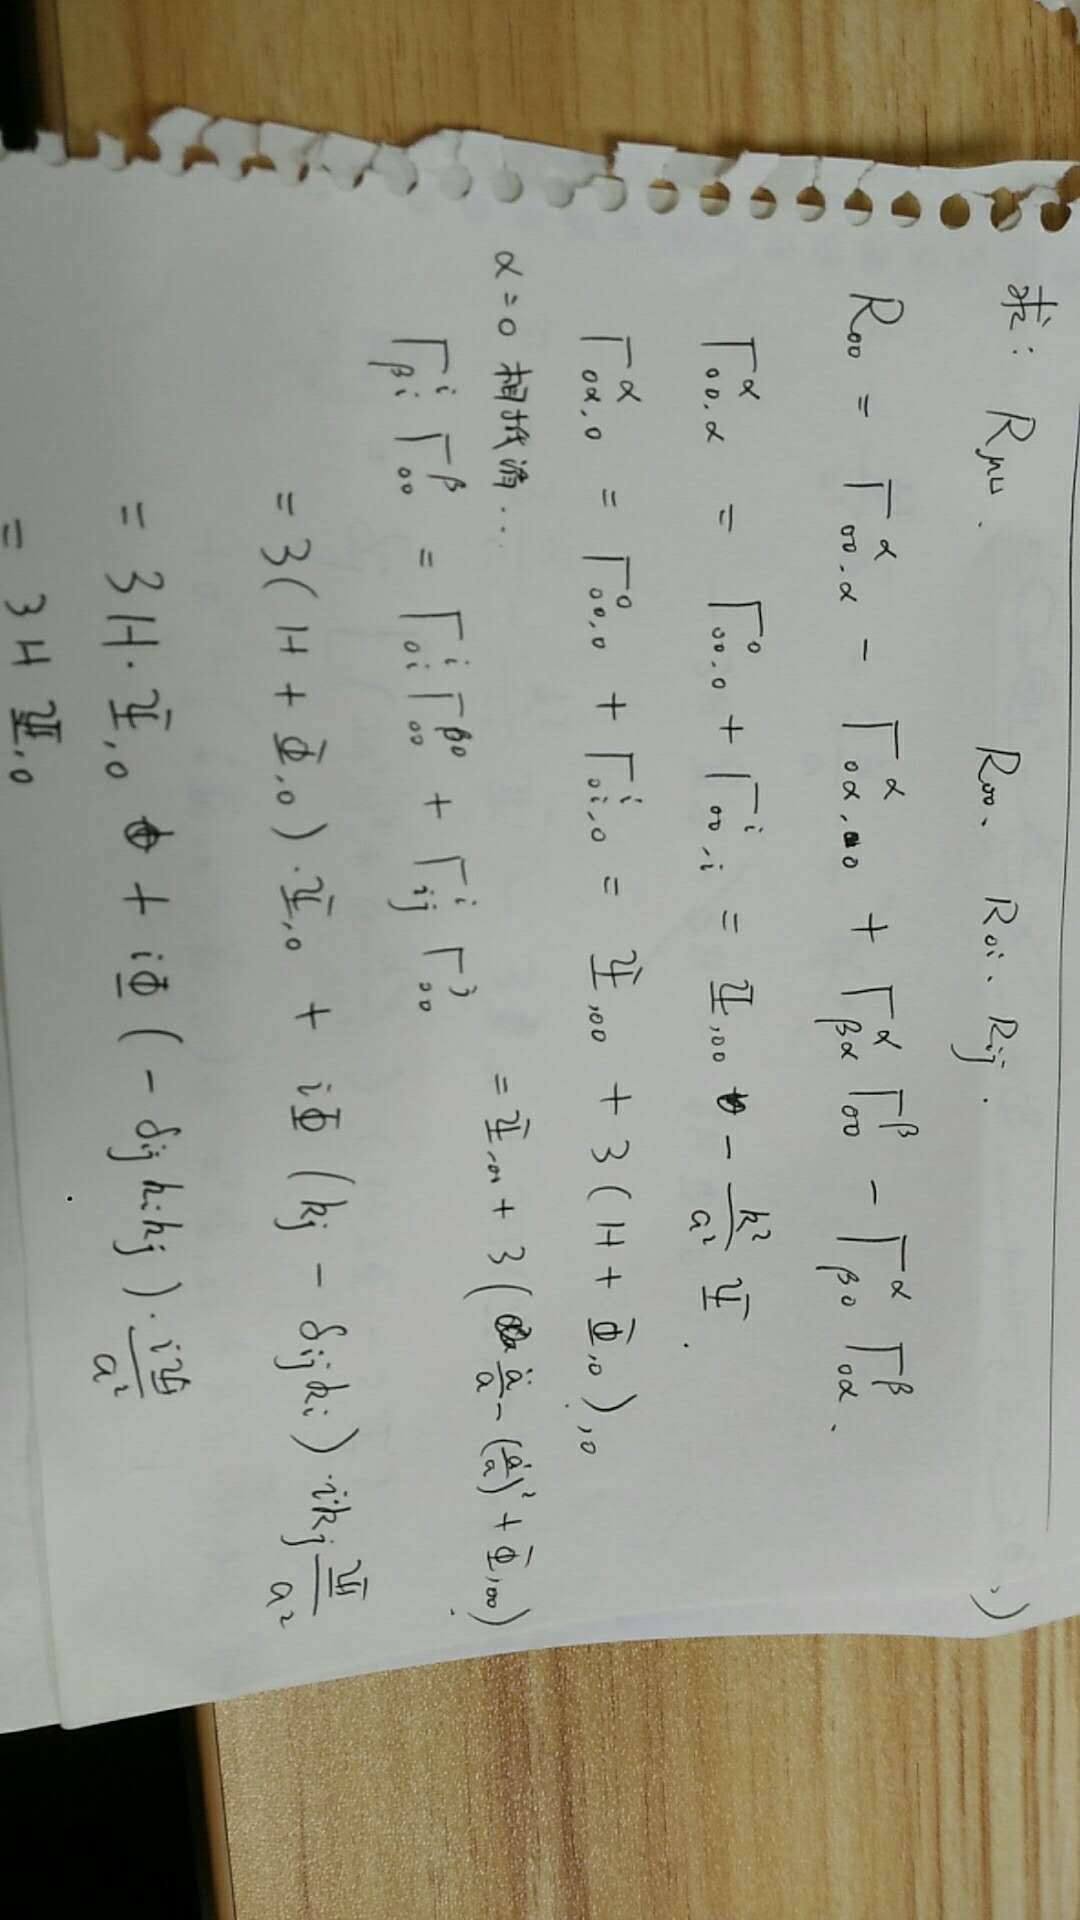 求: Rμν. R₀₀、R₀i、Rij.
R₀₀ = Γ^α_{00,α} − Γ^α_{0α,0} + Γ^α_{βα} Γ^β_{00} − Γ^α_{β0} Γ^β_{0α}.
Γ^α_{00,α} = Γ^0_{00,0} + Γ^i_{00,i} = Ψ,₀₀ − k²/a² Ψ.
Γ^α_{0α,0} = Γ^0_{00,0} + Γ^i_{0i,0} = Ψ,₀₀ + 3(H + Φ,₀),₀
= Ψ,₀₀ + 3(ä/a − (ȧ/a)² + Φ,₀₀).
α=0 相抵消...
Γ^i_{βi} Γ^β_{00} = Γ^i_{0i} Γ^0_{00} + Γ^i_{ij} Γ^j_{00}
= 3(H + Φ,₀)·Ψ,₀ + iΦ(kj − δij ki)·ikj Ψ/a²
= 3H·Ψ,₀ + iΦ(−δij ki kj)·iΨ/a²
= 3HΨ,₀